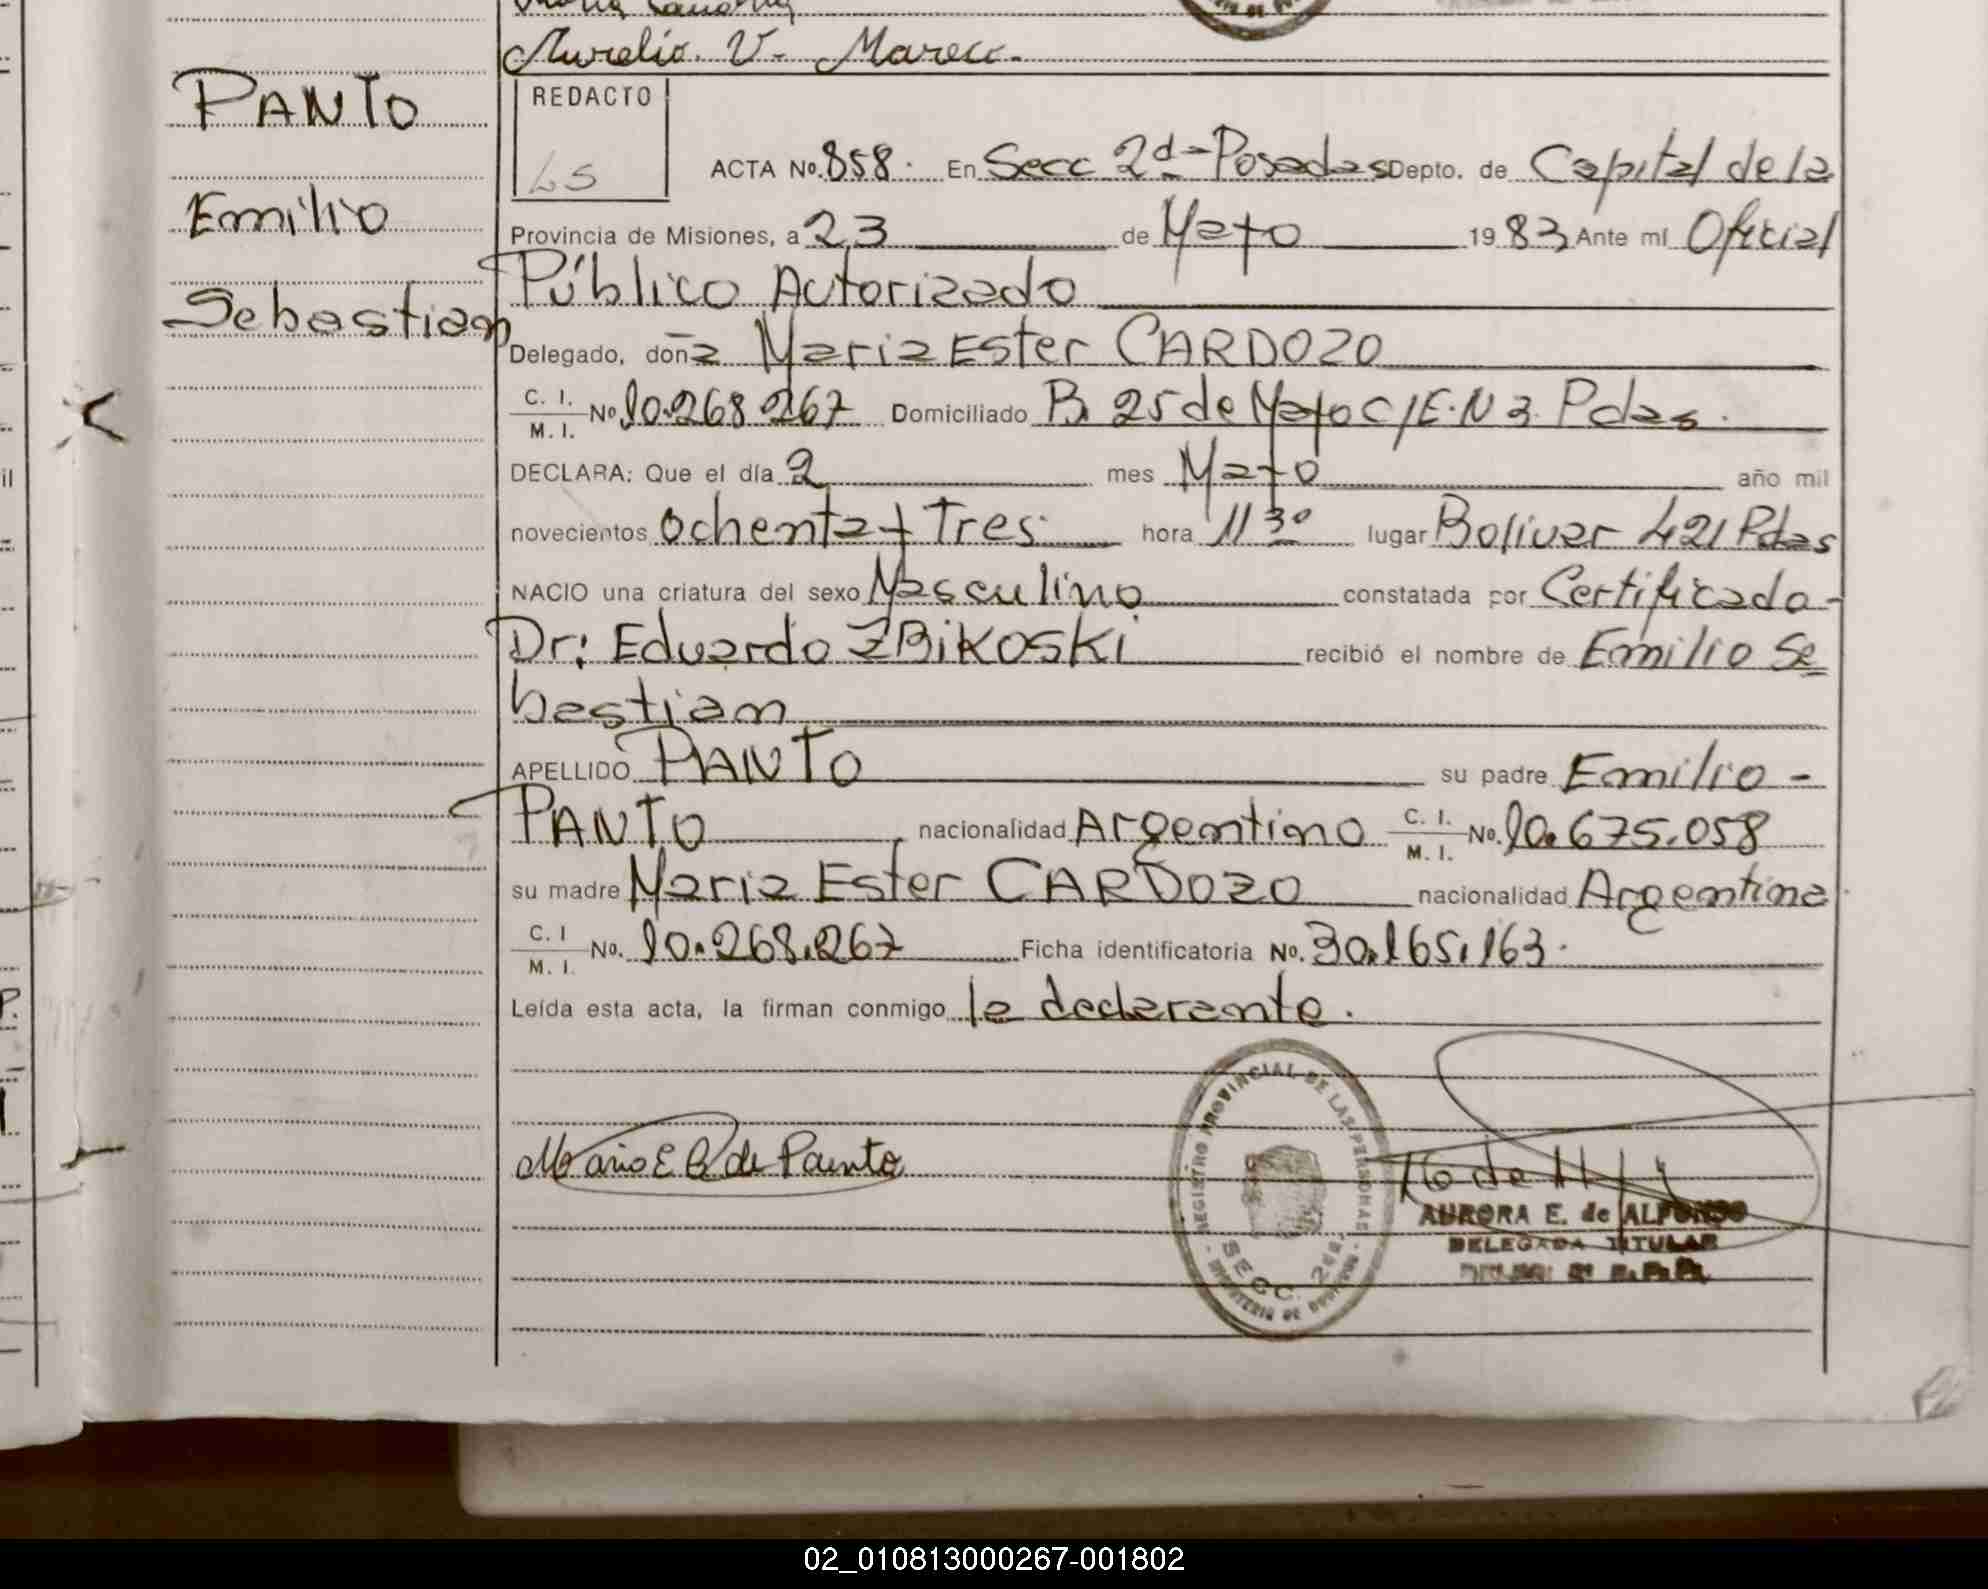 Aurelio. V. Mareco.
PANTO
Emilio
Sebastian
REDACTO
LS
ACTA No. 858. En Secc 2da Posadas Depto. de Capital de la
Provincia de Misiones, a 23 de Mayo 1983 Ante mí Oficial
Público Autorizado
Delegado, doña Maria Ester CARDOZO
C. I.
M. I. No 10.268.267 Domiciliado B. 25 de Mayo C/E. N 3. Pdas.
DECLARA: Que el día 2 mes Mayo año mil
novecientos ochenta y Tres hora 11 30 lugar Bolivar 421 Pdas
NACIO una criatura del sexo Masculino constatada por Certificado-
Dr: Eduardo ZBIKOSKI recibió el nombre de Emilio Se
bastian
APELLIDO PANTO su padre Emilio -
PANTO nacionalidad Argentino C. I. M. I. No. 10.675.058
su madre Maria Ester CARDOZO nacionalidad Argentina
C. I
M. I. No. 10.268.267 Ficha identificatoria No. 30.165.163.
Leída esta acta, la firman conmigo la declarante.
Maria E C de Panto
REGISTRO PROVINCIAL DE LAS PERSONAS
SECC. 2da.
AURORA E. de ALFONSO
DELEGADA TITULAR
02_010813000267-001802